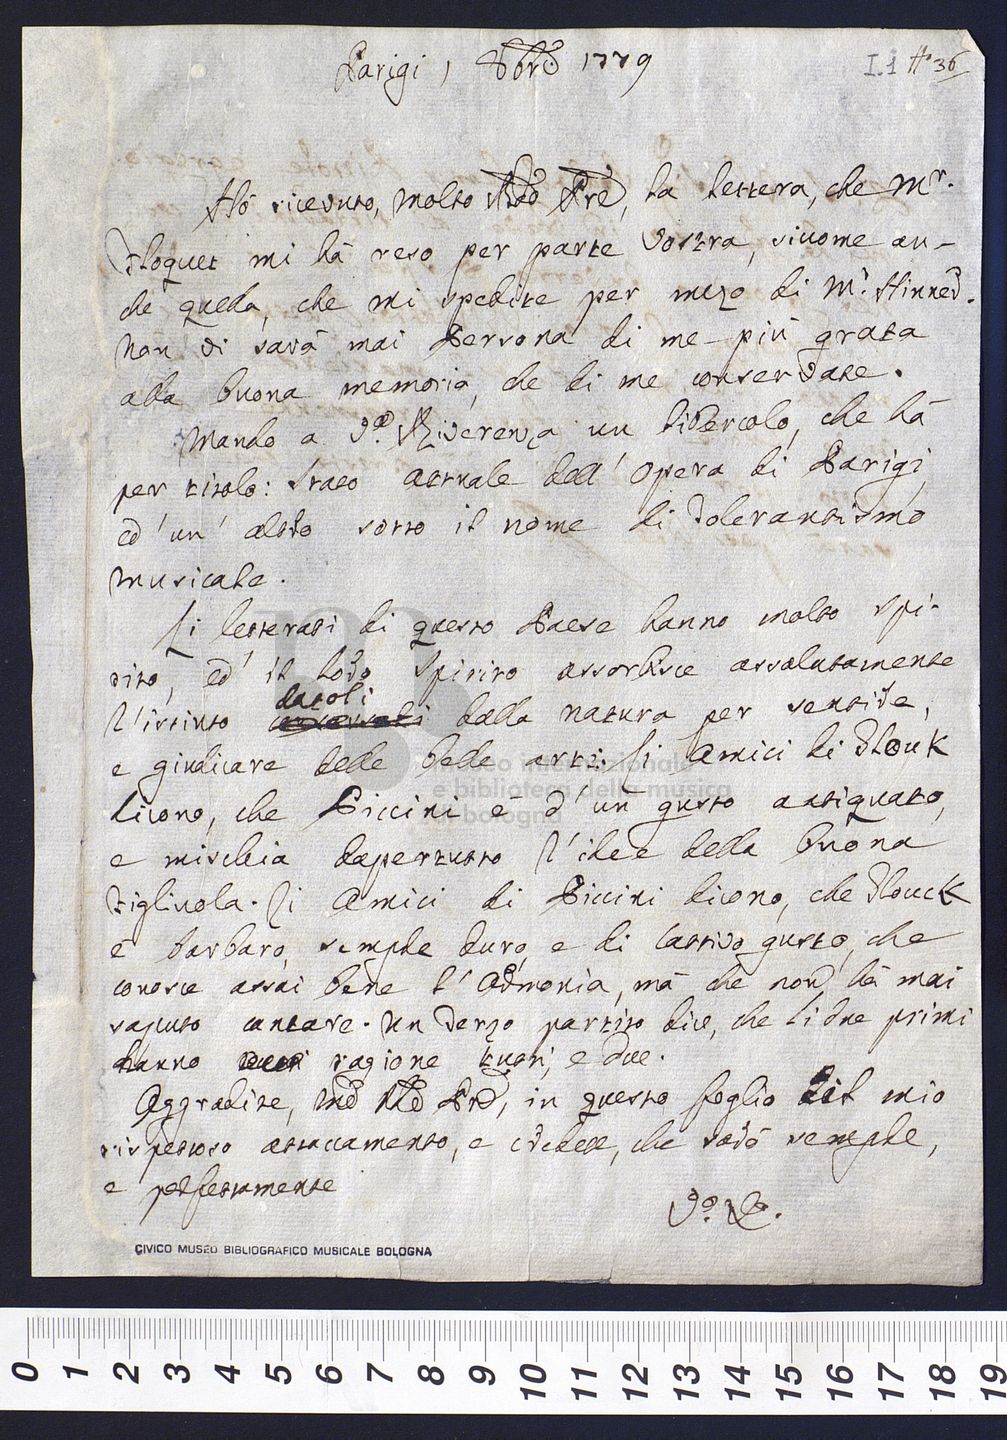 Parigi, 1779
I.1 36
Hò ricevuto, molto Rdo Pre, la lettera, che Mr.
Floquet mi hà reso per parte vostra, sicome an-
che quella, che mi spedite per mezo di Mr.
Non vi sarà mai Persona di me più grata
alla buona memoria, che di me conservate.
Mando a Va. Riverenza un libercolo, che hà
per titolo: Stato attuale dell' Opera di Parigi,
ed' un' altro sotto il nome di Tolerantismo
musicale.
Li letterati di questo Paese hanno molto spi-
rito, ed' il loro spirito assorbisce assolutamente
l'istinto datoli dalla natura per sentire,
e giudicare delle belle arti. Li Amici di Glouk
dicono, che Piccini è d'un gusto antiquato,
e mischia dapertutto l'idee della buona
figliuola. Li Amici di Piccini dicono, che Glouck
è barbaro, sempre duro, e di cattivo gusto, che
conosce assai bene l'Armonia, mà che non hà mai
saputo cantare. Un Terzo partito dice, che li due primi
hanno ragione tutti, e due.
Aggradite, Mo Rdo Pre, in questo foglio il mio
rispettoso attaccamento, e credete, che sarò sempre,
e perfettamente
Va. R.
museo internazionale
e biblioteca della musica
di bologna
CIVICO MUSEO BIBLIOGRAFICO MUSICALE BOLOGNA
0 1 2 3 4 5 6 7 8 9 10 11 12 13 14 15 16 17 18 19